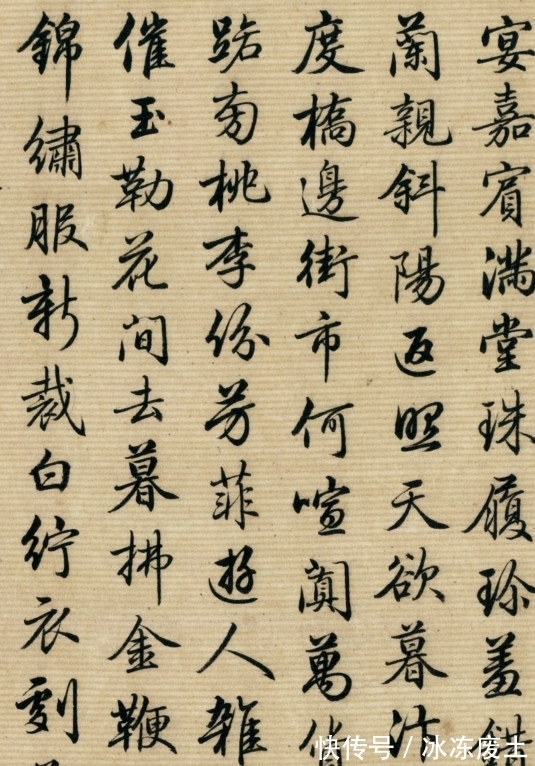 宴嘉賓滿堂珠履珍羞
蘭親斜陽返照天欲暮
度橋邊街市何喧闐萬
路旁桃李份芳菲遊人雜
催玉勒花间去暮拂金鞭
錦繡服新裁白紵衣
快传号 / 冰冻废土